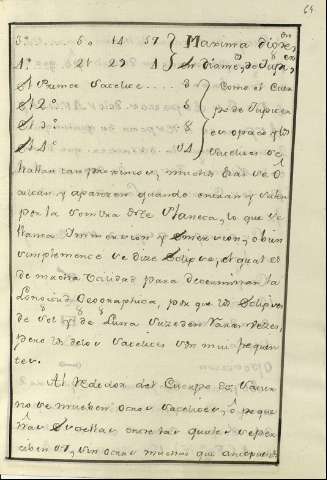 64
3º 6 0 14 57 } Maxima digres, on
4º 21 23 } en diamet,s de Jupi,r
Al Primer Satelite . . . . 3 Como el Cuer
Al 2º . . . . . . 6 po de Jupiter
Al 3º . . . . . . 8 es opaco y los
Al 4º . . . . . . Satelites se
hallan tan proximos, muchas veces se o
cultan, y aparecen quando entran y salen
por la sombra deste Planeta, lo que se
llama Immersion y Emersion, o bien
simplemente se dice Eclipse, el qual es
de mucha utilidad para determinar la
Longitud Geographica, por que los Eclipses
de Sol y de Luna suceden raras vezes,
pero los de los Satelites son mui frequen
tes.
Al rededor del Cuerpo de Satur
no se mueben otros Satelites, ô peque
ñas Estrellas, entre las quales se per
ciben otras muchas que